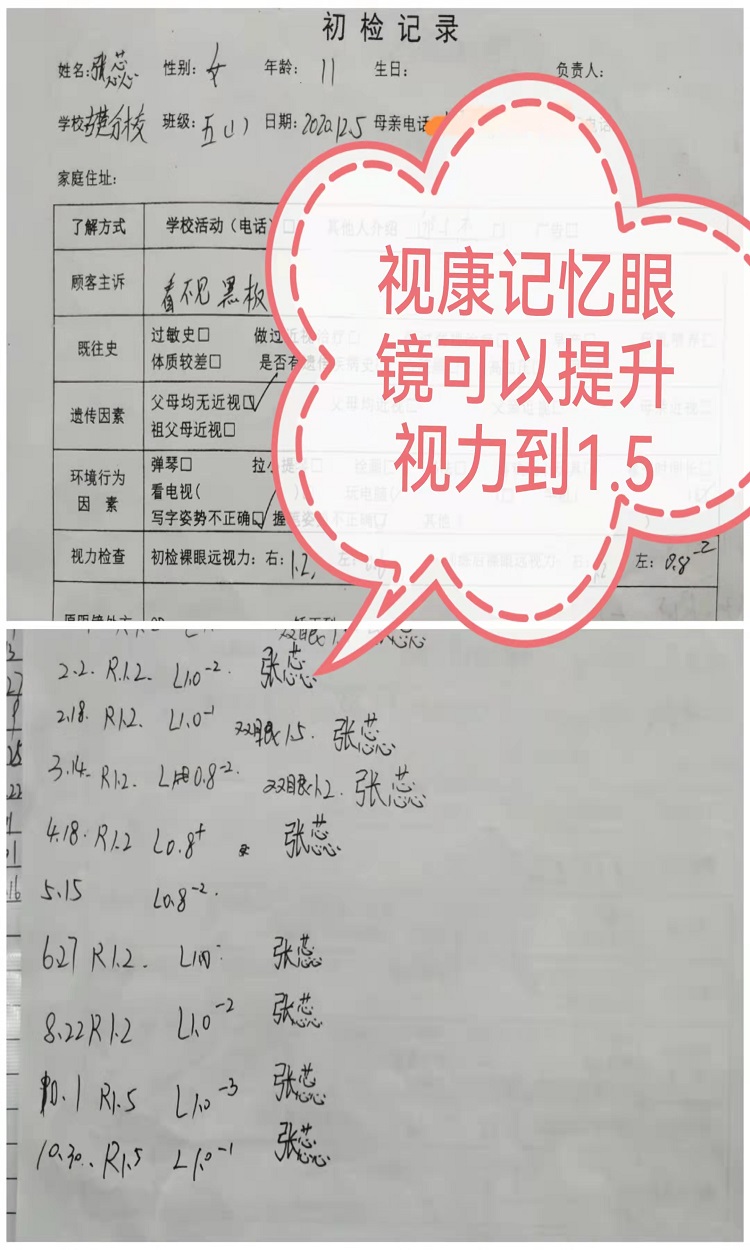 初检记录
姓名: 张蕊 性别: 女 年龄: 11 生日: 负责人:
学校 分校 班级: 五(1) 日期: 2020.12.5 母亲电话
家庭住址:
了解方式 学校活动(电话)□ 其他人介绍 □ 广告□
顾客主诉 看不见黑板
既往史 过敏史□ 做过近视治疗□
体质较差□ 是否有遗传疾病史
遗传因素 父母均无近视☑ 父母均近视□ 母亲近视□
祖父母近视□
环境行为因素 弹琴□ 拉小提琴□
看电视( )□ 玩电脑(
写字姿势不正确☑ 握笔姿势不正确□ 其他(
视力检查 初检裸眼远视力: 右: 1.2, 左: 左: 0.8⁻²
视康记忆眼
镜可以提升
视力到1.5
双眼1.
2.2. R1.2. L1.0⁻². 张蕊
2.18. R1.2. L1.0⁻¹ 双眼1.5. 张蕊
3.14. R1.2. L 0.8⁻². 双眼1.2. 张蕊
4.18. R1.2 L0.8⁺ 张蕊
5.15 L0.8⁻².
6.27 R1.2. 张蕊
8.22 R1.2 L1.0⁻² 张蕊
10.1 R1.5 L1.0⁻³ 张蕊
10.30.. R1.5 L1.0⁻¹ 张蕊